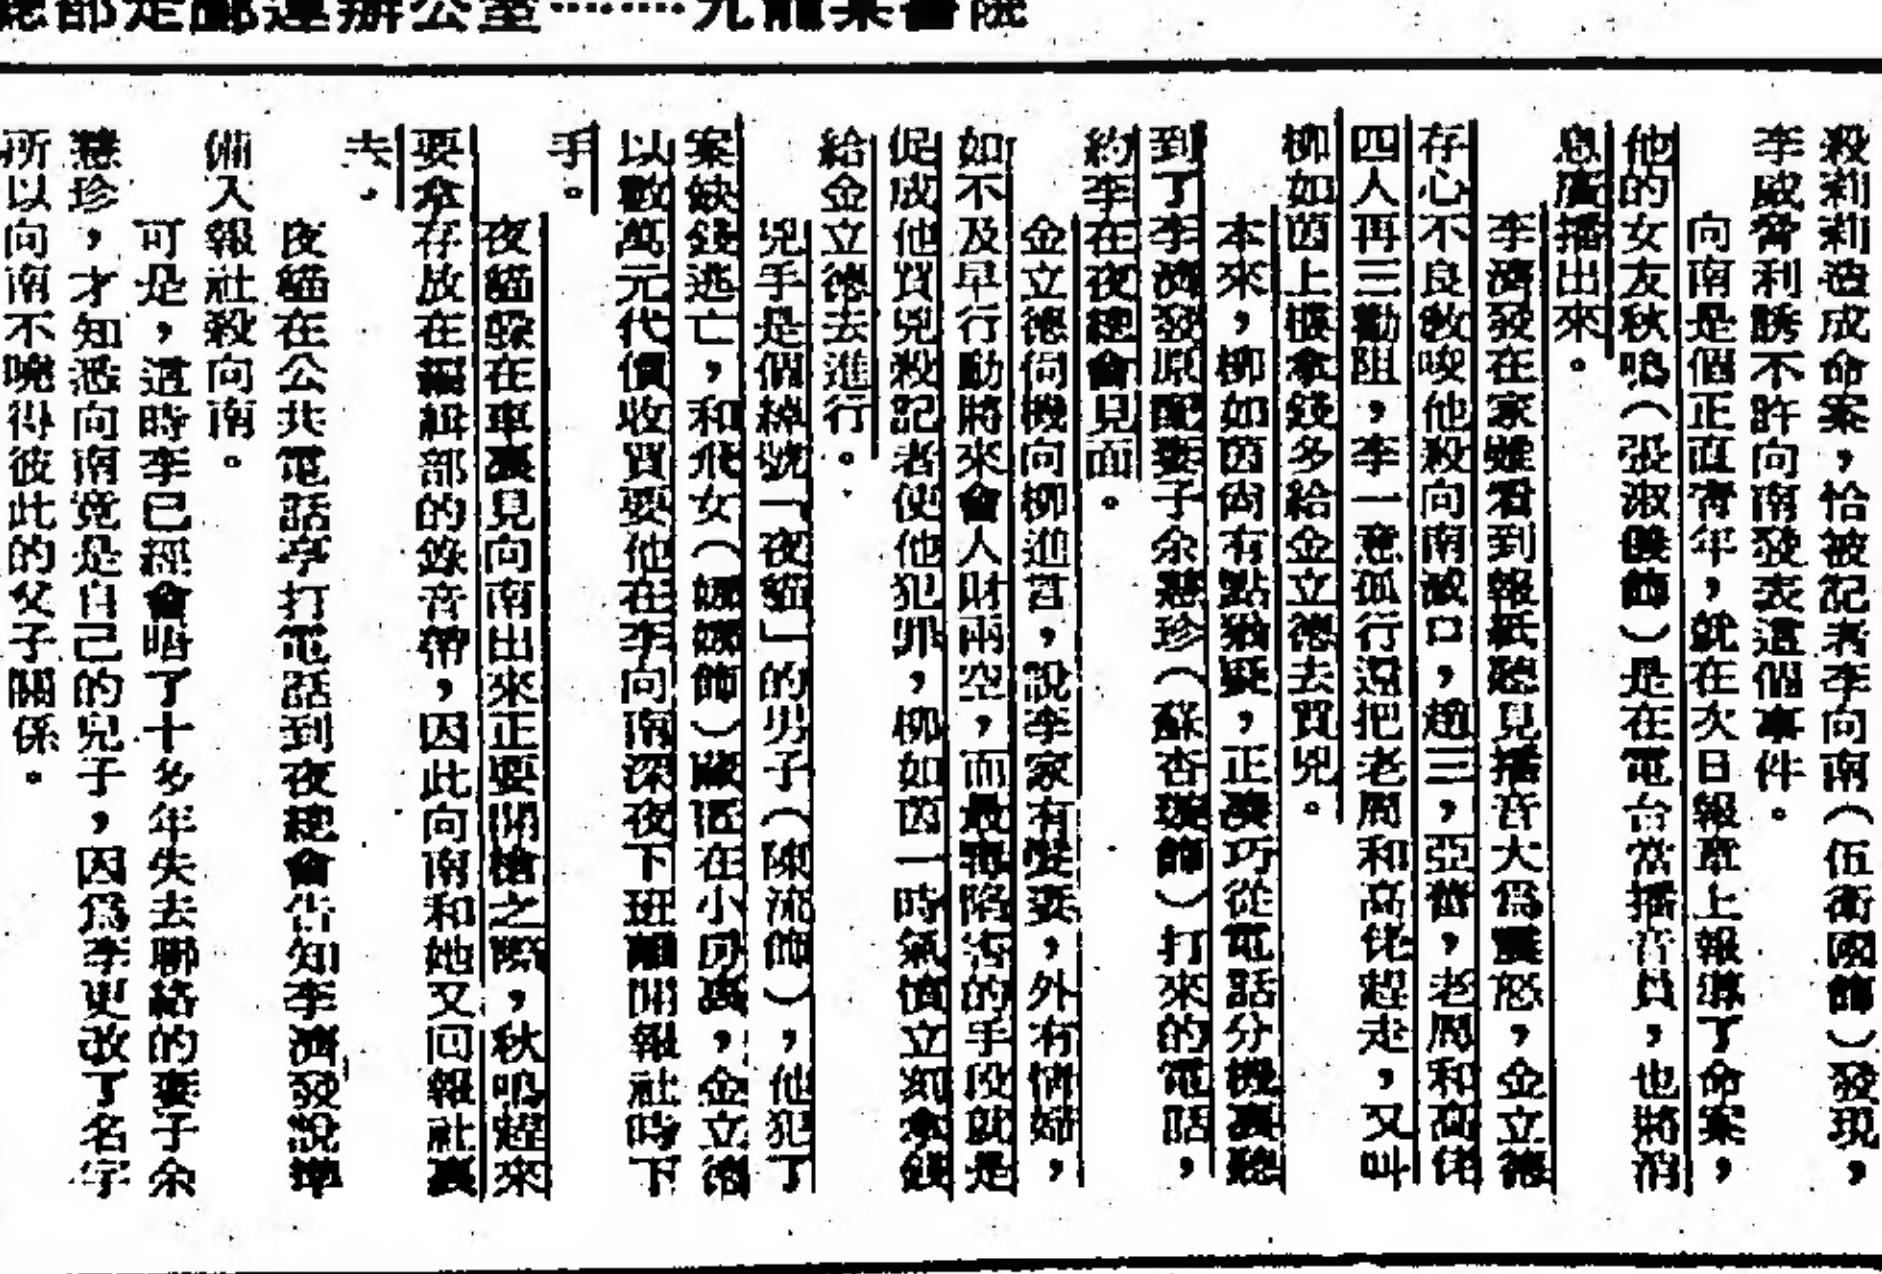 總部走廊連辦公室⋯⋯⋯九龍某書院
殺莉莉造成命案,恰被記者李向南(伍衛國飾)發現,
李威脅利誘不許向南發表這個事件。
向南是個正直青年,就在次日報章上報導了命案,
他的女友秋鳴(張淑儀飾)是在電台當播音員,也將消
息廣播出來。
李濟發在家雖看到報紙聽見播音大爲震怒,金立德
存心不良敎唆他殺向南滅口,趙三,亞舊,老周和高佬
四人再三勸阻,李一意孤行還把老周和高佬趕走,又叫
柳如茵上樓拿錢多給金立德去買兇。
本來,柳如茵尚有點猶疑,正湊巧從電話分機裏聽
到了李濟發原配妻子余慧珍(蘇杏璇飾)打來的電話,
約李在夜總會見面。
金立德伺機向柳進言,說李家有髮妻,外有情婦,
如不及早行動將來會人財兩空,而最毒陷害的手段就是
促成他買兇殺記者使他犯罪,柳如茵一時氣憤立刻拿錢
給金立德去進行。
兇手是個綽號「夜貓」的男子(陳流飾),他犯了
案缺錢逃亡,和飛女(娜娜飾)藏匿在小房裏,金立德
以數萬元代價收買要他在李向南深夜下班離開報社時下
手。
夜貓躱在車裏見向南出來正要開槍之際,秋鳴趕來
要拿存放在編輯部的錄音帶,因此向南和她又回報社裏
去。
夜貓在公共電話亭打電話到夜總會告知李濟發說準
備入報社殺向南。
可是,這時李已經會晤了十多年失去聯絡的妻子余
慧珍,才知悉向南竟是自己的兒子,因爲李更改了名字
所以向南不曉得彼此的父子關係。